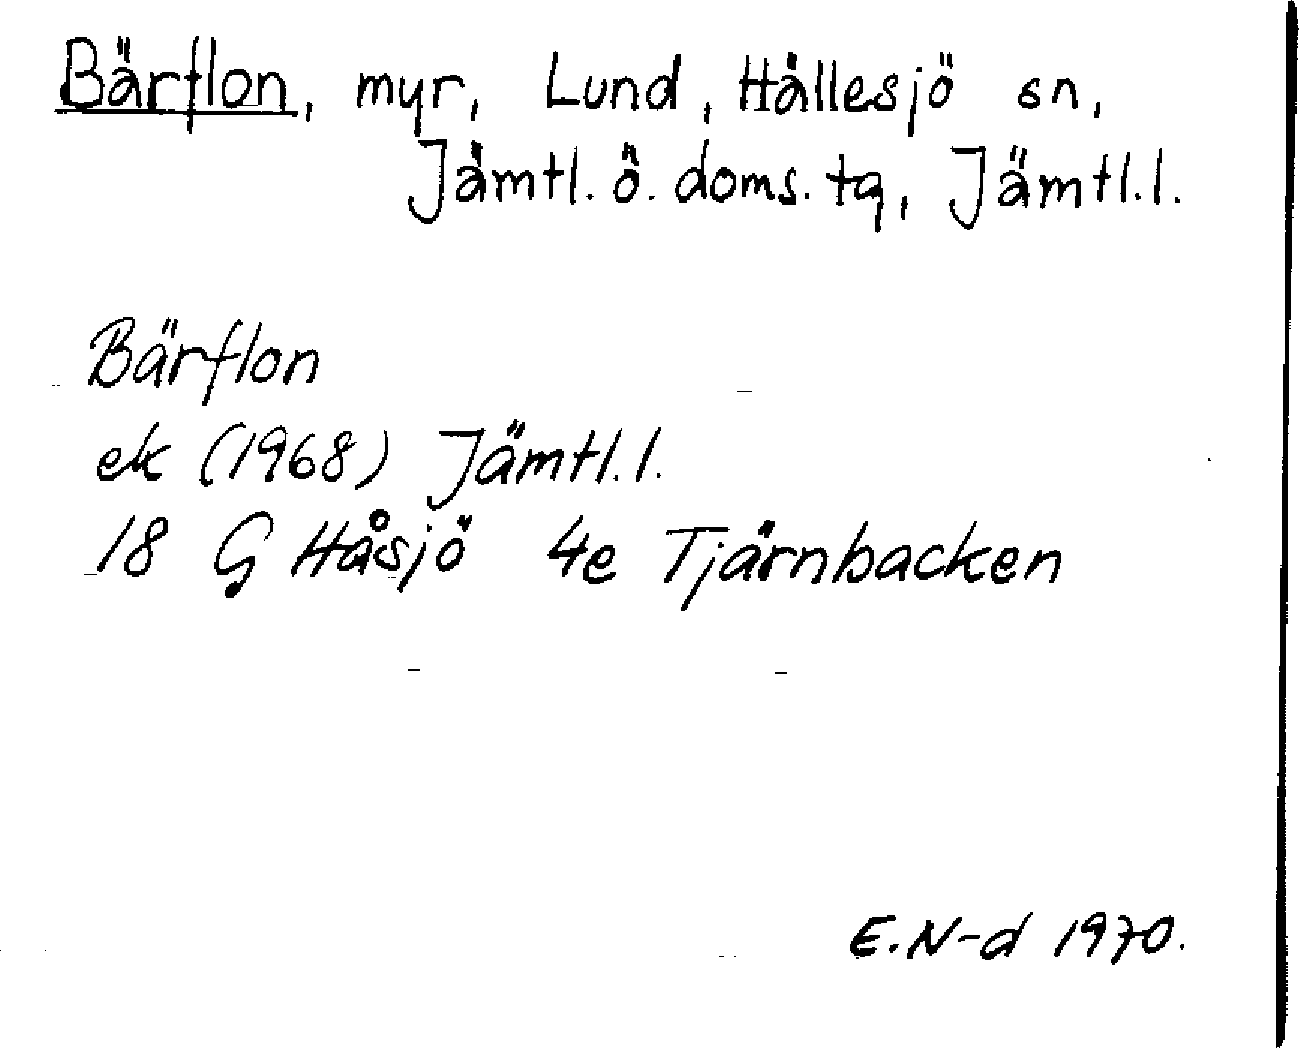 Bärflon, myr, Lund, Hällesjö sn,
Jämtl. ö. doms. tg, Jämtl. l.
Bärflon
ek (1968) Jämtl. l.
18 G Håsjö 4e Tjärnbacken
E. N-d 1970.